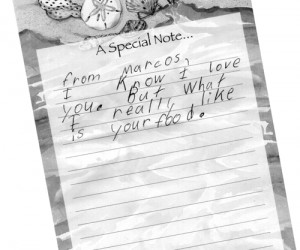 A Special Note...
from Marcos,
I Know I love
you. But What
I really like
is your food.